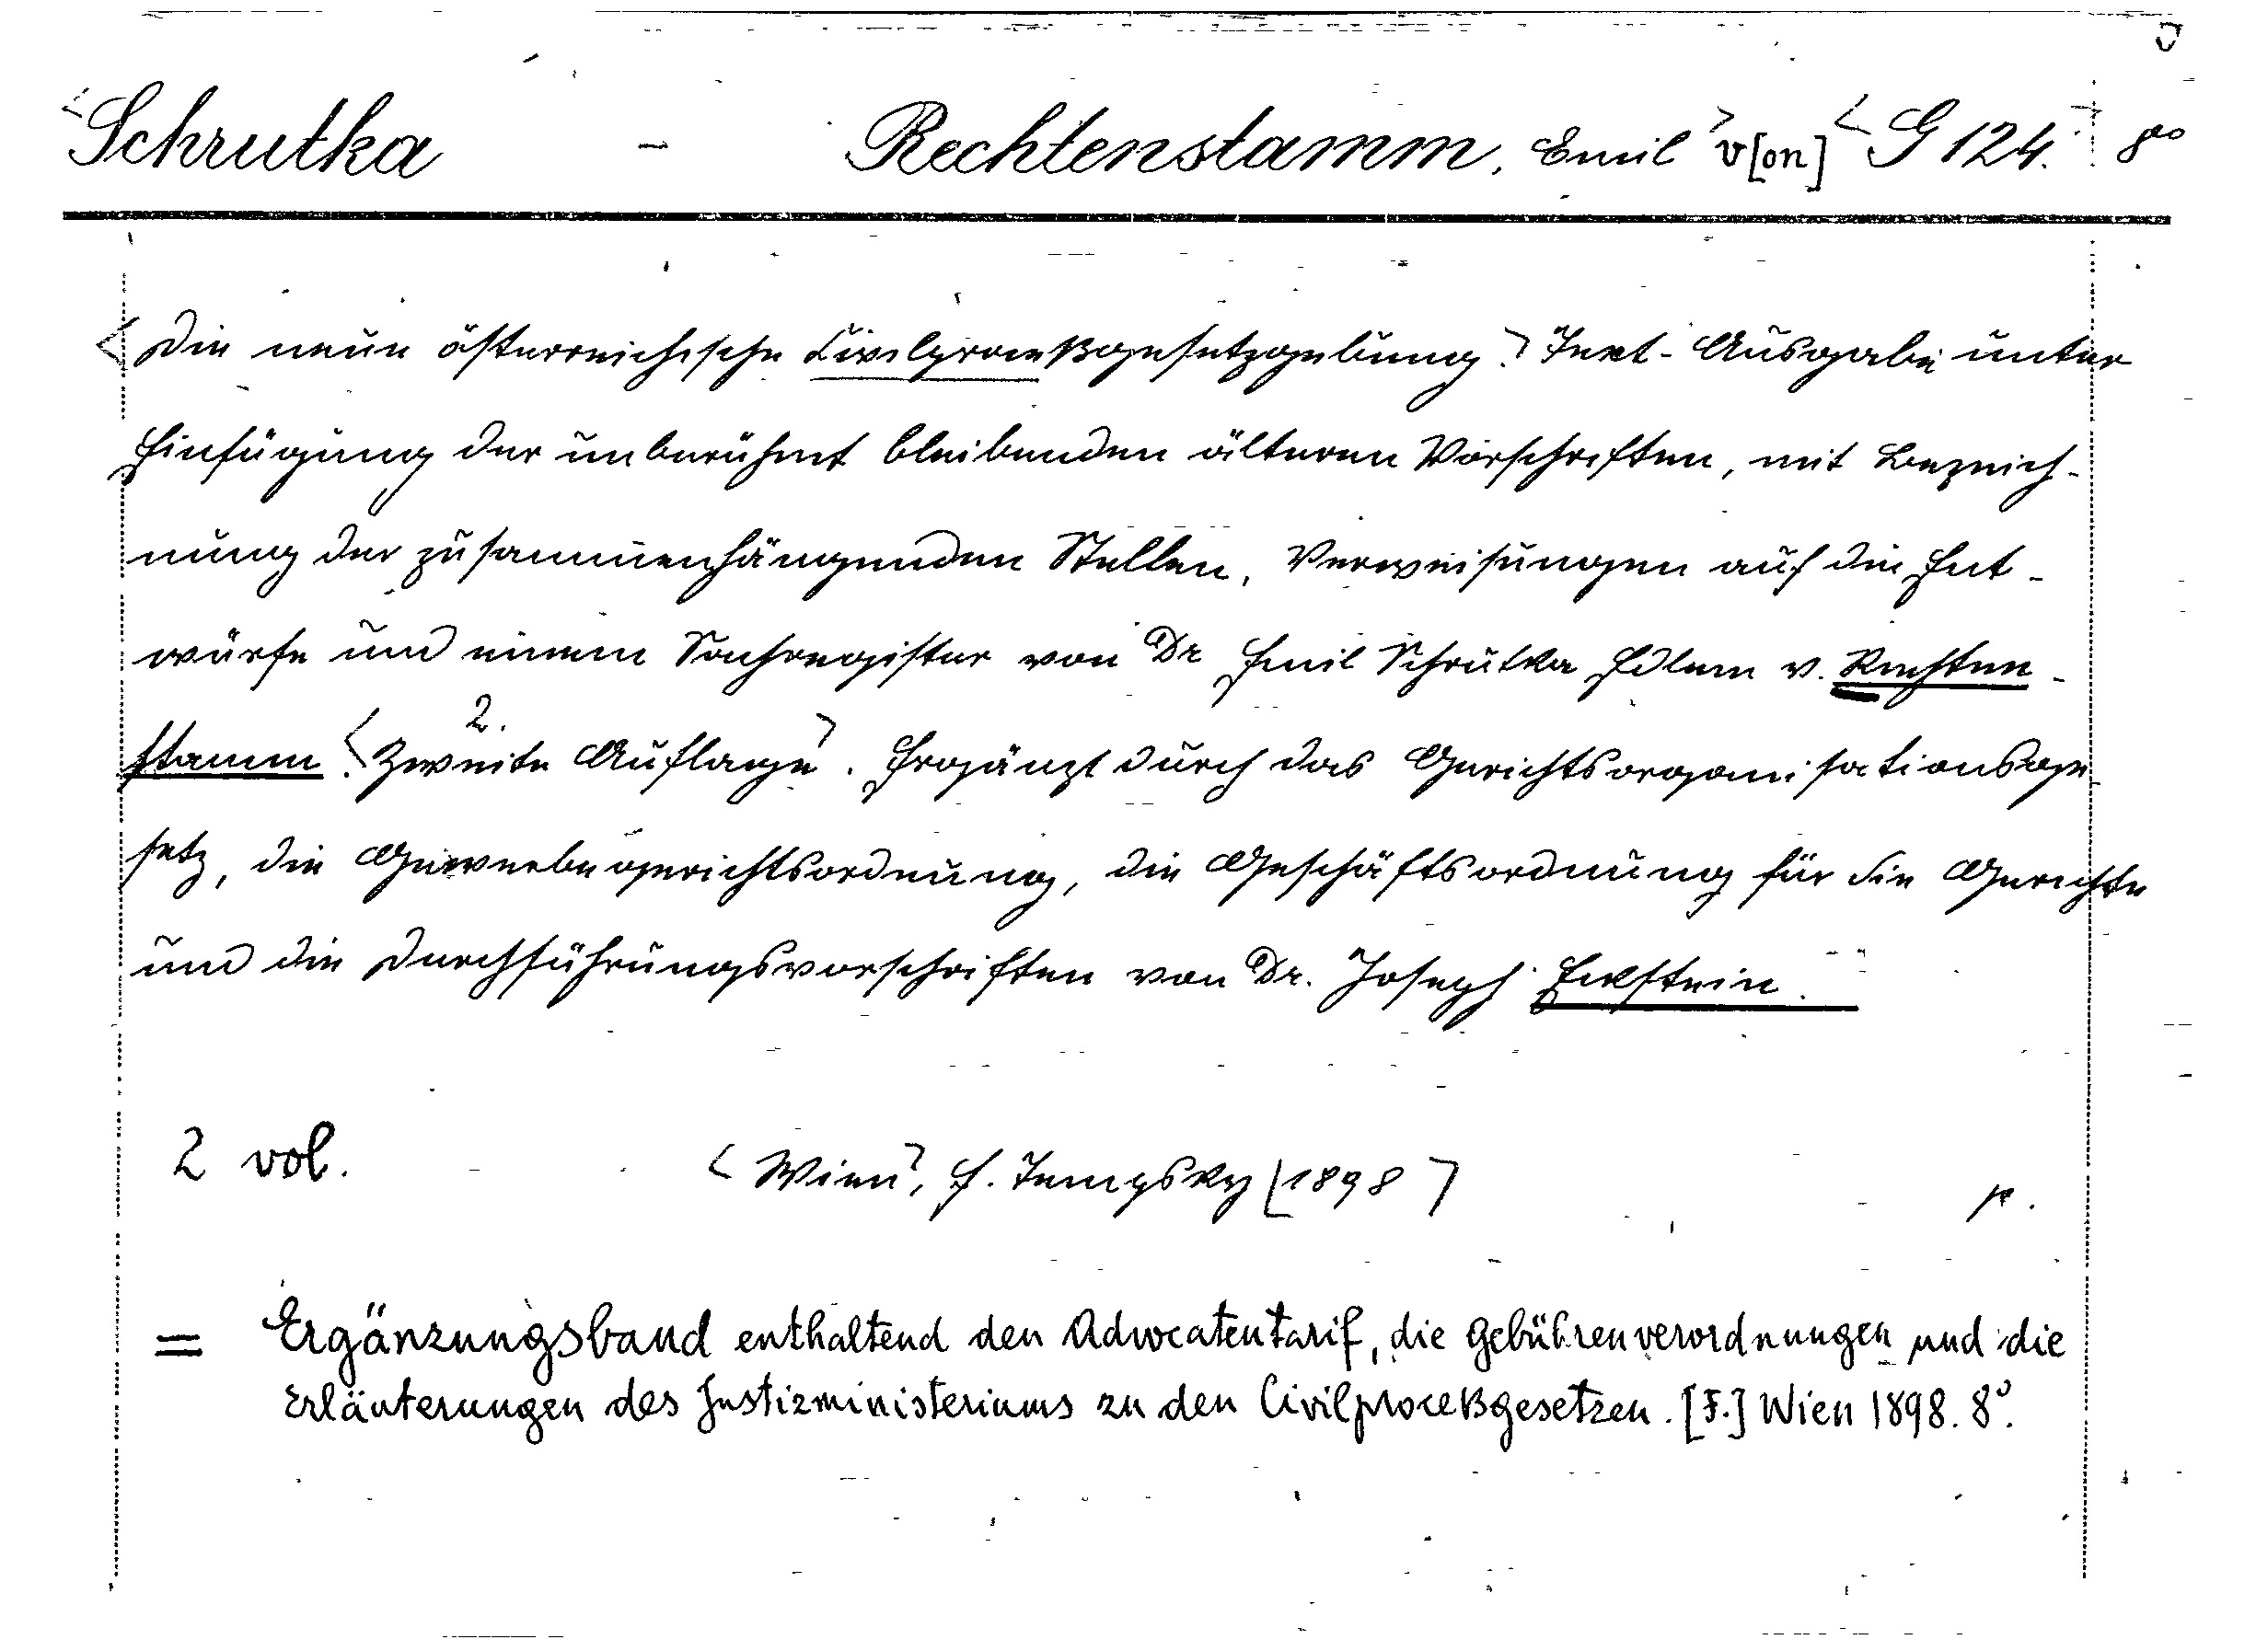 <Schrutka - Rechtenstamm, Emil> v[on] <G 124. 8°°
<Die neue österreichische Civilproceßgesetzgebung.> Text-Ausgabe unter
Einfügung der unberührt bleibenden älteren Vorschriften, mit Bezeich-
nung der zusammenhängenden Stellen, Verweisungen auf die Ent-
würfe und einem Sachregister von Dr Emil Schrutka Edlem v. Rechten-
stamm. <2. Zweite Auflage>. Ergänzt durch das Gerichtsorganisationsge-
setz, die Gewerbegerichtsordnung, die Geschäftsordnung für die Gerichte
und die Durchführungsvorschriften von Dr. Joseph Eckstein.
2 vol. <Wien>, F. Tempsky [1898]
= Ergänzungsband enthaltend den Advocatentarif, die Gebührenverordnungen und die
Erläuterungen des Justizministeriums zu den Civilproceßgesetzen. [F.] Wien 1898. 8°.